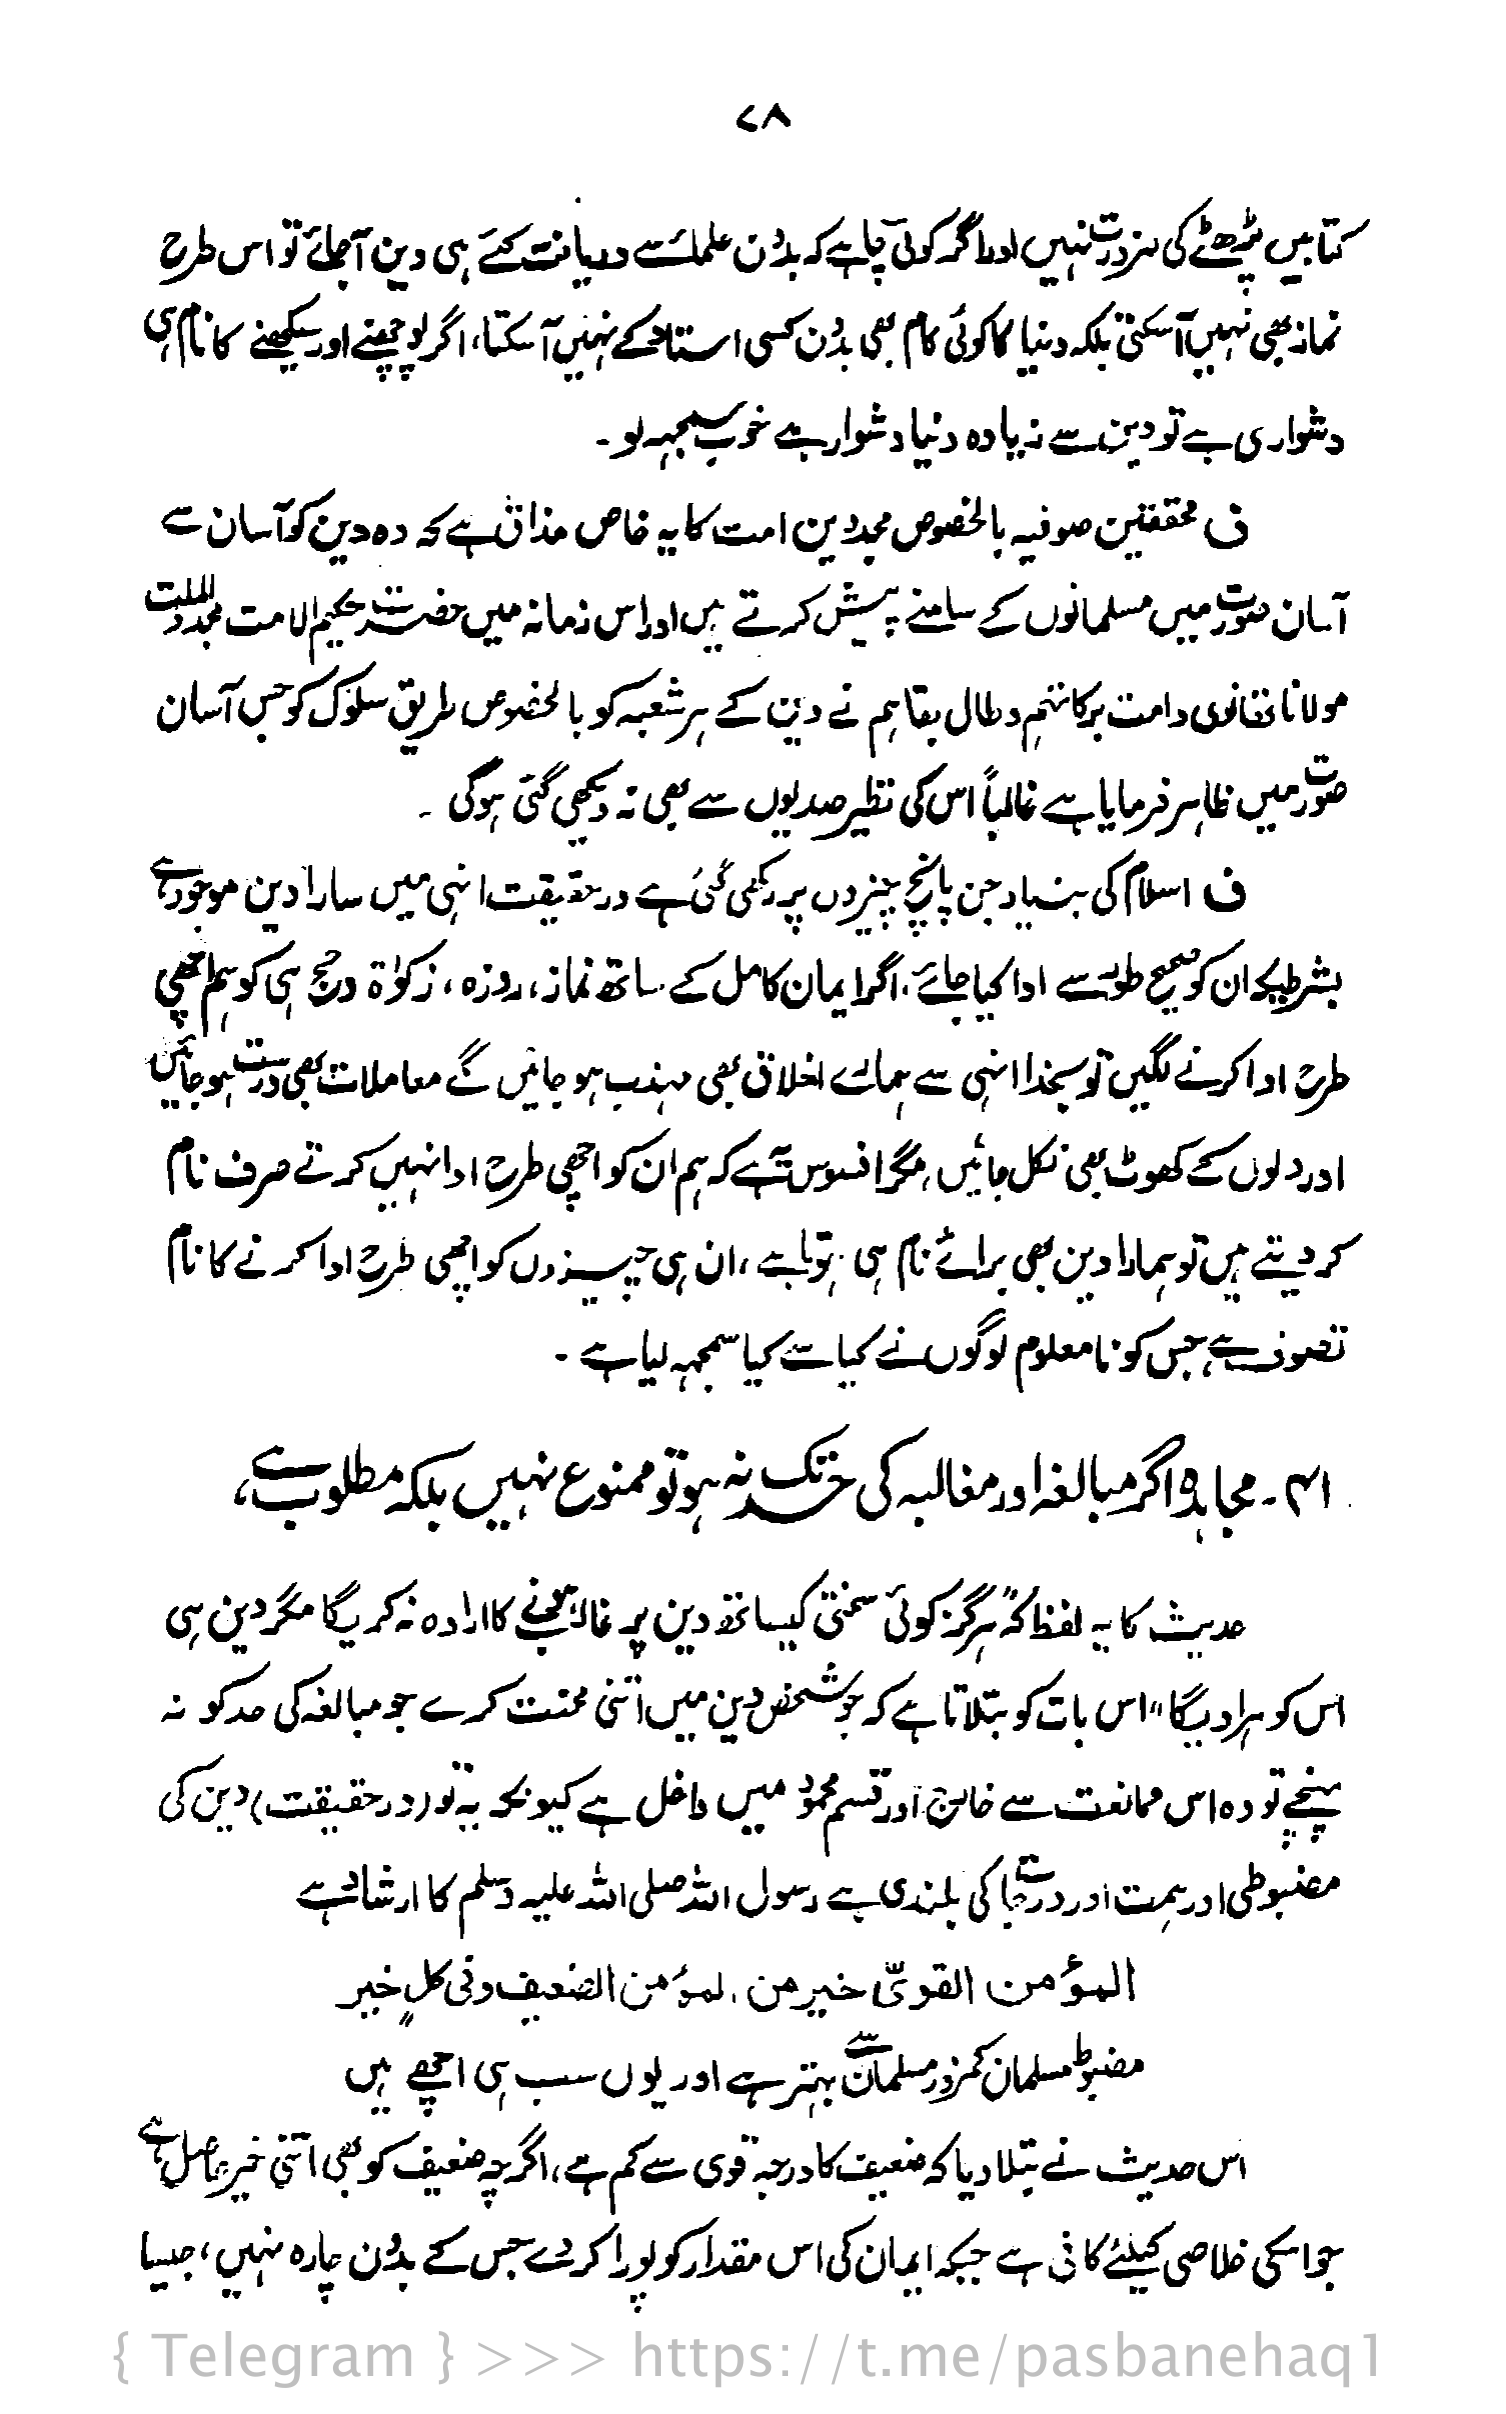 ۷۸
کتابیں پڑھنے کی ضرورت نہیں اور اگر کوئی چاہے کہ بدُن علماء سے دریافت کئے ہی دین آجائے تو اس طرح
نماز بھی نہیں آسکتی بلکہ دنیا کا کوئی کام بھی بدُن کسی استاد کے نہیں آسکتا، اگر پوچھنے اور سیکھنے کا نام ہی
دشواری ہے تو دین سے زیادہ دنیا دشوار ہے خوب سمجہہ لو۔
ف محققین صوفیہ بالخصوص مجددین امت کا یہ خاص مذاق ہے کہ وہ دین کو آسان سے
آسان صورت میں مسلمانوں کے سامنے پیش کرتے ہیں اور اس زمانہ میں حضرت حکیم الامت مجدد الملت
مولانا تھانوی دامت برکاتہم و طال بقاہم نے دین کے ہر شعبہ کو بالخصوص طریق سلوک کو جس آسان
صورت میں ظاہر فرمایا ہے غالباً اس کی نظیر صدیوں سے بھی نہ دیکھی گئی ہوگی۔
ف اسلام کی بنیاد جن پانچ چیزوں پر رکھی گئی ہے درحقیقت انہی میں سارا دین موجود ہے
بشرطیکہ ان کو صحیح طور سے ادا کیا جائے، اگر ایمان کامل کے ساتھ نماز، روزہ، زکوٰۃ و حج ہی کو ہم اچھی
طرح ادا کرنے لگیں تو بخدا انہی سے ہمارے اخلاق بھی مہذب ہو جائیں گے معاملات بھی درست ہو جائیں
اور دلوں کے کھوٹ بھی نکل جائیں، مگر افسوس یہ ہے کہ ہم ان کو اچھی طرح ادا نہیں کرتے صرف نام
کر دیتے ہیں تو ہمارا دین بھی برائے نام ہی ہوتا ہے، ان ہی چیزوں کو اچھی طرح ادا کرنے کا نام
تصوف ہے، جس کو نامعلوم لوگوں نے کیا سے کیا سمجہہ لیا ہے۔
۴۱۔ مجاہدہ اگر مبالغہ اور مغالبہ کی حد تک نہ ہو تو ممنوع نہیں بلکہ مطلوب ہے،
حدیث کا یہ لفظ کہ "ہرگز کوئی سختی کیساتھ دین پر غالب ہونے کا ارادہ نہ کریگا مگر دین ہی
اس کو ہرا دیگا" اس بات کو بتلاتا ہے کہ جو شخص دین میں اتنی محنت کرے جو مبالغہ کی حد کو نہ
پہنچے تو وہ اس ممانعت سے خارج اور قسم محمود میں داخل ہے کیونکہ یہ تو (درحقیقت) دین کی
مضبوطی اور ہمت اور درجات کی بلندی ہے رسول اللہ صلی اللہ علیہ وسلم کا ارشاد ہے
المؤمن القویّ خیر من المؤمن الضعیف وفی کلٍ خیر
مضبوط مسلمان کمزور مسلمان سے بہتر ہے اور یوں سب ہی اچھے ہیں
اس حدیث نے بتلا دیا کہ ضعیف کا درجہ قوی سے کم ہے، اگرچہ ضعیف کو بھی اتنی خیر حاصل ہے
جو اسکی خلاصی کیلئے کافی ہے جبکہ ایمان کی اس مقدار کو پورا کر دے جس کے بدُن چارہ نہیں، جیسا
{ Telegram } >>> https://t.me/pasbanehaq1